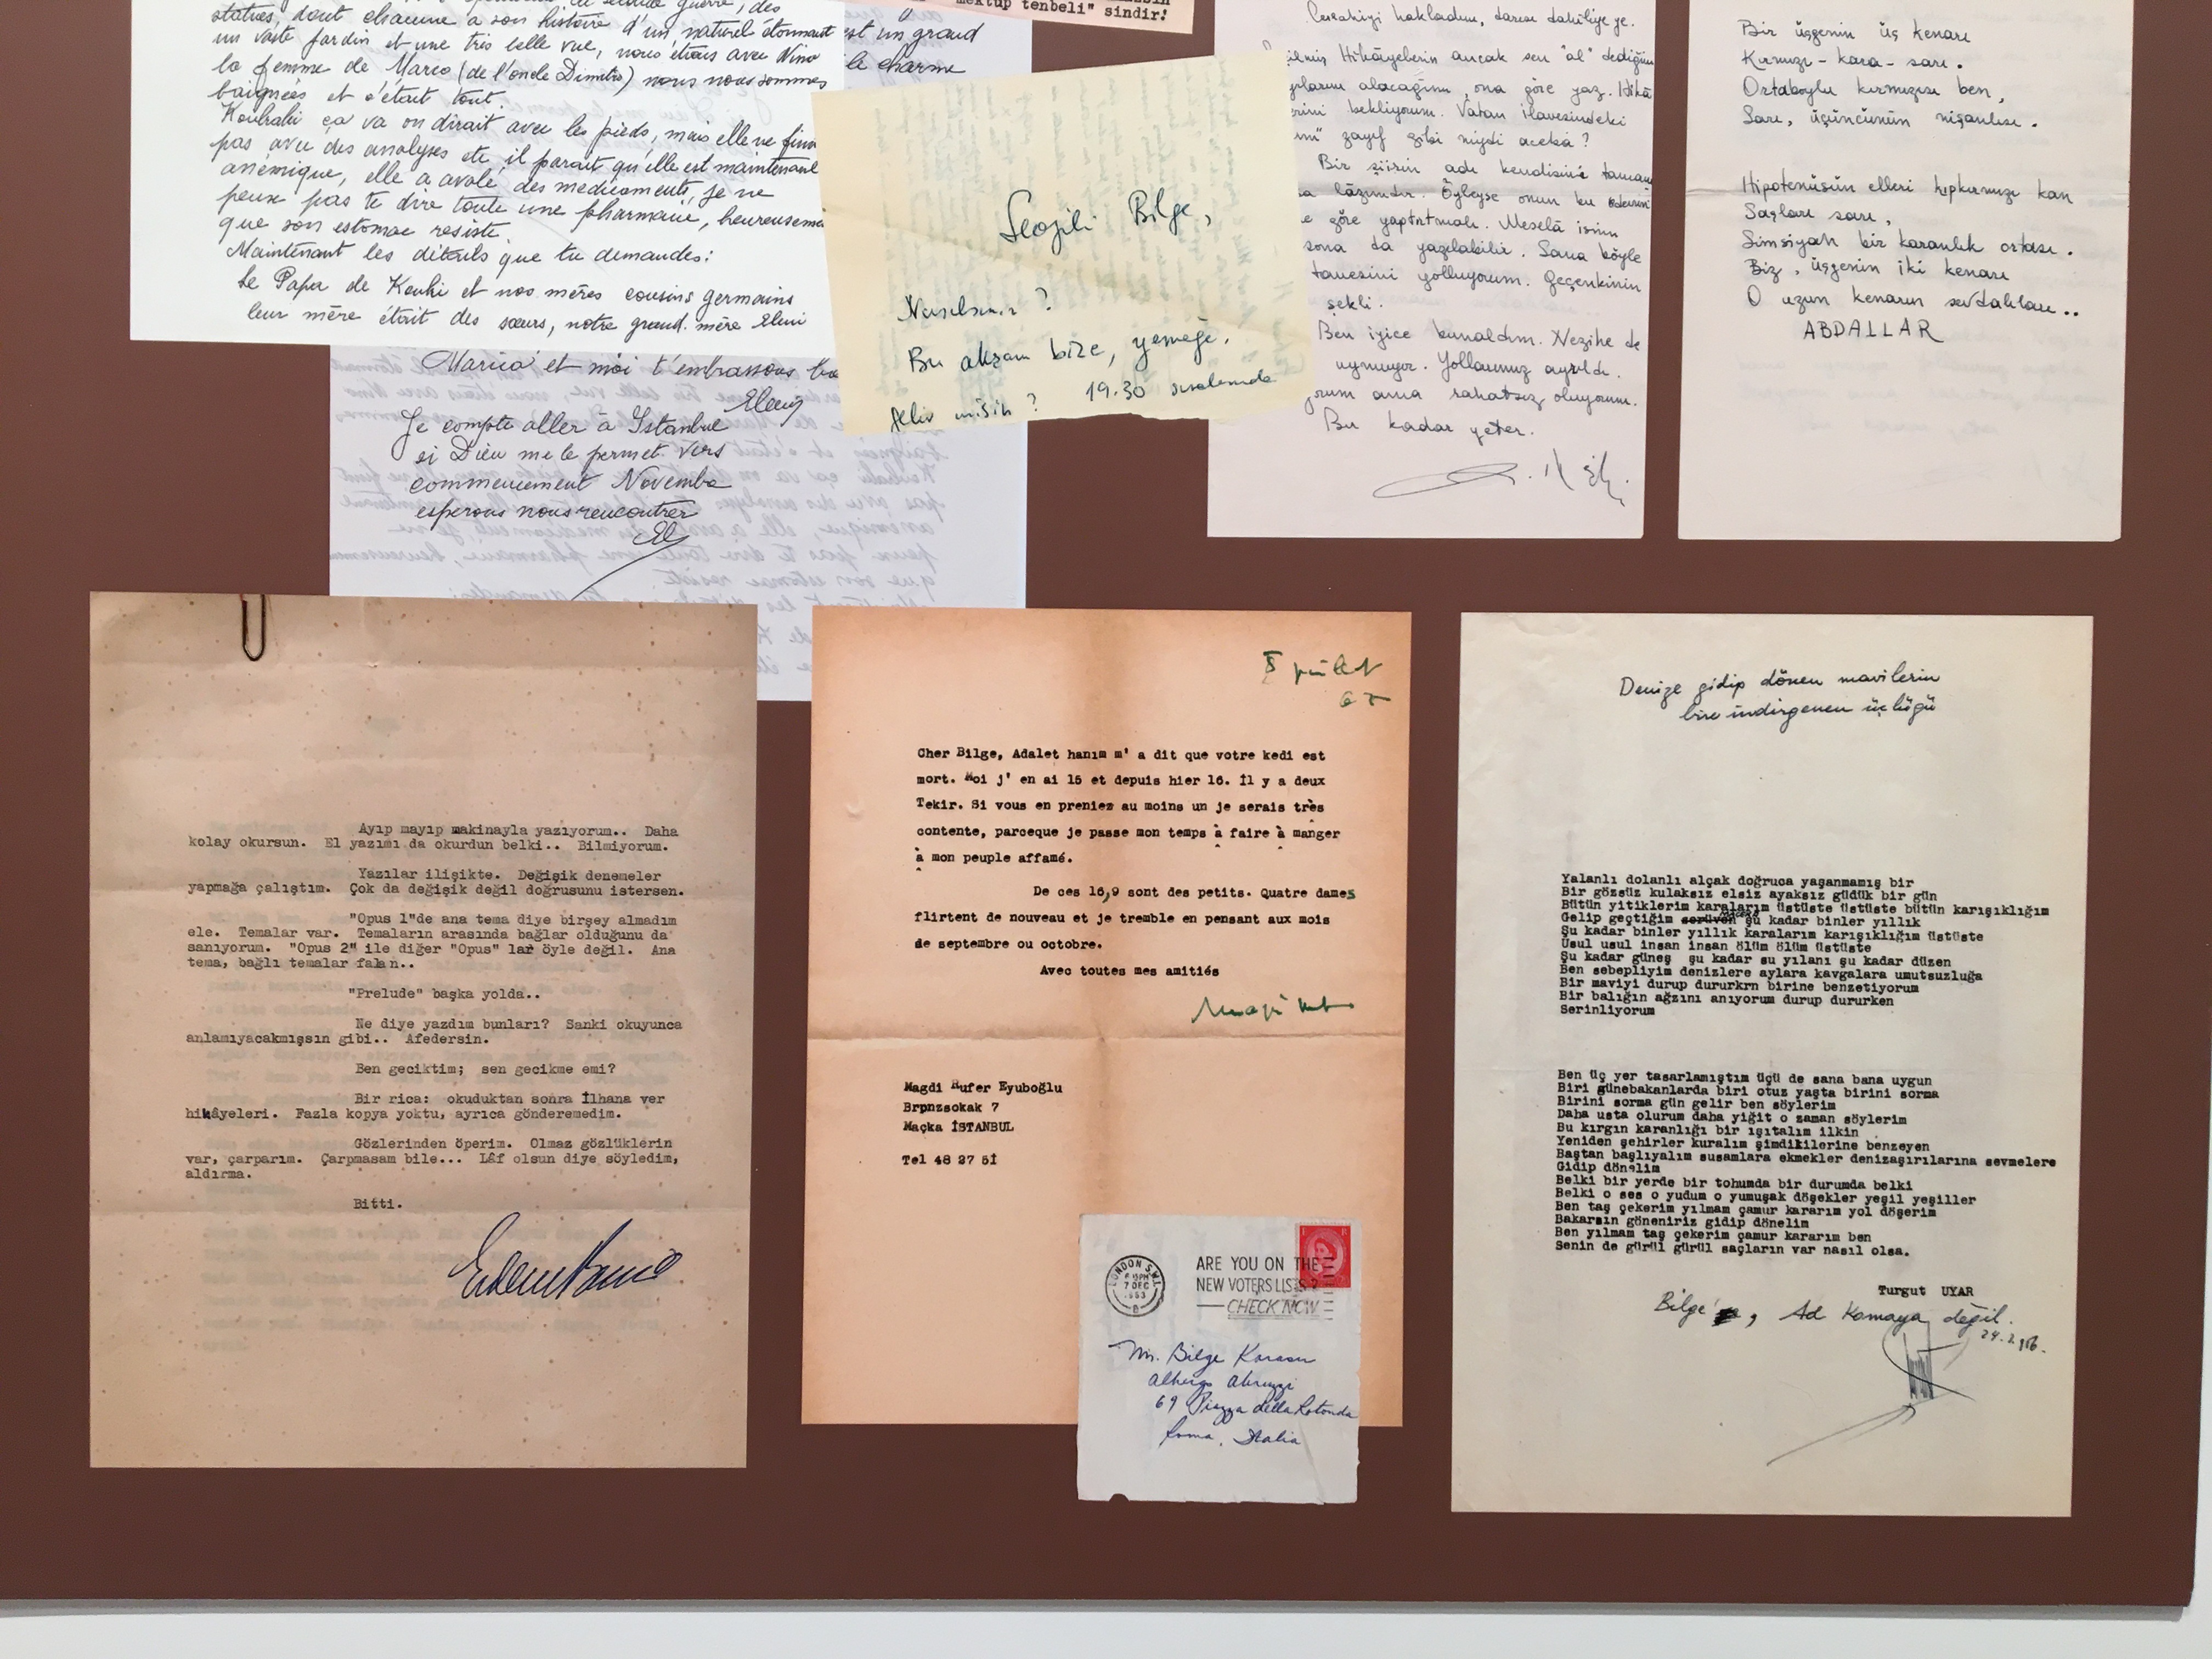 statues, dont chacune a son histoire d'un naturel étonnant
un vaste jardin et une très belle vue, nous étions avec Nino
la femme de Marco (de l'oncle Dimitro) nous nous sommes
baignées et c'était tout.
ça va on dirait avec les pieds, mais elle ne
pas avec des analyses etc, il parait qu'elle est maintenant
anémique, elle a avalé des medicaments, je ne
peux pas te dire toute une pharmacie,
que son estomac resiste.
Maintenant les détails que tu demandes:
Le Papa de Kouki et nos mères cousins germains
leur mère était des sœurs, notre grand. mère Eleni
est un grand
le charme
Marica et moi t'embrassons
Je compte aller à Istanbul
si Dieu me le permet vers
commencement
esperons nous rencontrer
El
mektup tenbeli" sindir!
Sevgili Bilge,
Nasılsınız?
Bu akşam bize, yemeğe,
misin? 19.30 sıralarında
hakladım, darısı dahiliyeye.
Hikâyelerin ancak sen "al" dediğin
alacağım, ona göre yaz. Hikâ
bekliyorum. Vatan ilavesindeki
zayıf gibi miydi acaba?
Bir şiirin adı kendisine tamam
lâzımdır. Öyleyse onun bu
göre yaptırtmalı. Meselâ ismin
sona da yazılabilir. Sana böyle
tanesini yolluyorum. Geçenkinin
şekli.
Ben iyice bunaldım. Nezihe de
uymuyor. Yollarımız ayrıldı.
ama rahatsız oluyorum.
Bu kadar yeter.
Bir üçgenin üç kenarı
Kırmızı - kara - sarı.
Ortaboylu kırmızısı ben,
Sarı, üçüncünün nişanlısı.
Hipotenüsün elleri kıpkırmızı kan
Saçları sarı,
Simsiyah bir karanlık ortası.
Biz, üçgenin iki kenarı
O uzun kenarın sevdalıları..
ABDALLAR
Ayıp mayıp makinayla yazıyorum.. Daha
kolay okursun. El yazımı da okurdun belki.. Bilmiyorum.
Yazılar ilişikte. Değişik denemeler
yapmağa çalıştım. Çok da değişik değil doğrusunu istersen.
"Opus 1"de ana tema diye birşey almadım
ele. Temalar var. Temaların arasında bağlar olduğunu da
sanıyorum. "Opus 2" ile diğer "Opus" lar öyle değil. Ana
tema, bağlı temalar falan..
"Prelude" başka yolda..
Ne diye yazdım bunları? Sanki okuyunca
anlamıyacakmışsın gibi.. Afedersin.
Ben geciktim; sen gecikme emi?
Bir rica: okuduktan sonra İlhana ver
hikâyeleri. Fazla kopya yoktu, ayrıca gönderemedim.
Gözlerinden öperim. Olmaz gözlüklerin
var, çarparım. Çarpmasam bile... Lâf olsun diye söyledim,
aldırma.
Bitti.
Cher Bilge, Adalet hanım m' a dit que votre kedi est
mort. Moi j' en ai 15 et depuis hier 16. İl y a deux
Tekir. Si vous en preniez au moins un je serais très
contente, parceque je passe mon temps à faire à manger
à mon peuple affamé.
De ces 16,9 sont des petits. Quatre dames
flirtent de nouveau et je tremble en pensant aux mois
de septembre ou octobre.
Avec toutes mes amitiés
Magdi Rufer Eyuboğlu
Brpnzsokak 7
Maçka İSTANBUL
Tel 48 27 51
LONDON S.W.1.
6 15PM
7 DEC
1953
B
ARE YOU ON THE
NEW VOTERS LISTS?
CHECK NOW
Mr. Bilge Karasu
Albergo Abruzzi
69 Piazza della Rotonda
Roma, Italia
Denize gidip dönen mavilerin
bire indirgenen üçlüğü
Yalanlı dolanlı alçak doğruca yaşanmamış bir
Bir gözsüz kulaksız elsiz ayaksız güdük bir gün
Bütün yitiklerim karalarım üstüste üstüste bütün karışıklığım
Gelip geçtiğim serüven şu kadar binler yıllık
Şu kadar binler yıllık karalarım karışıklığım üstüste
Usul usul insan insan ölüm ölüm üstüste
Şu kadar güneş şu kadar su yılanı şu kadar düzen
Ben sebepliyim denizlere aylara kavgalara umutsuzluğa
Bir maviyi durup dururkrn birine benzetiyorum
Bir balığın ağzını anıyorum durup dururken
Serinliyorum
Ben üç yer tasarlamıştım üçü de sana bana uygun
Biri günebakanlarda biri otuz yaşta birini sorma
Birini sorma gün gelir ben söylerim
Daha usta olurum daha yiğit o zaman söylerim
Bu kırgın karanlığı bir ışıtalım ilkin
Yeniden şehirler kuralım şimdikilerine benzeyen
Baştan başlıyalım susamlara ekmekler denizaşırılarına sevmelere
Gidip dönelim
Belki bir yerde bir tohumda bir durumda belki
Belki o ses o yudum o yumuşak döşekler yeşil yeşiller
Ben taş çekerim yılmam çamur kararım yol döşerim
Bakarsın göneniriz gidip dönelim
Ben yılmam taş çekerim çamur kararım ben
Senin de gürül gürül saçların var nasıl olsa.
Turgut UYAR
Bilge'ye, Ad Komaya değil.